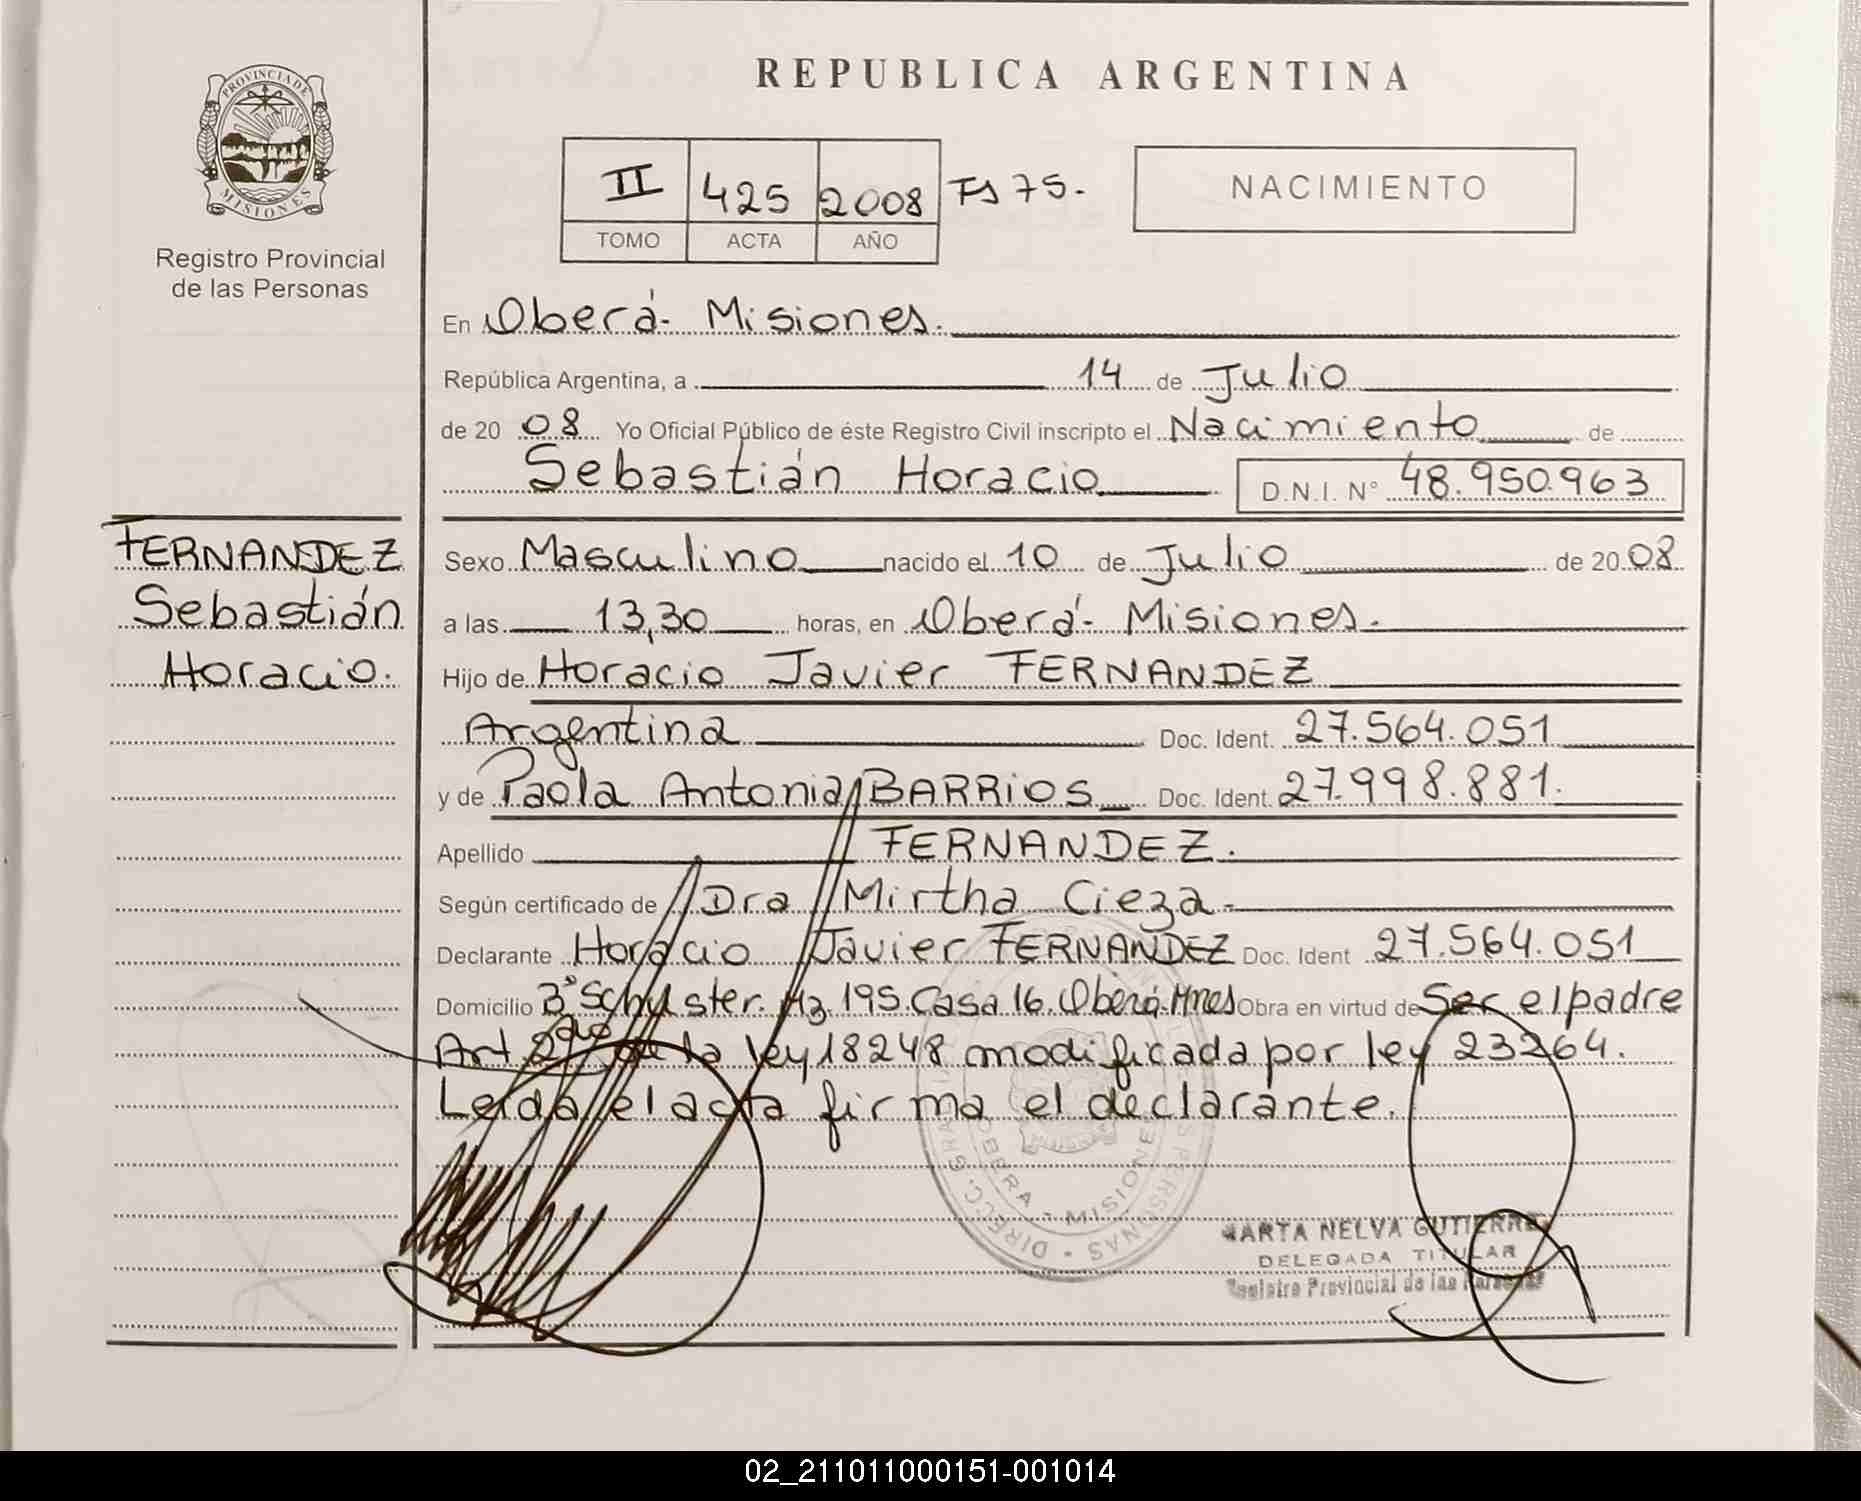 REPUBLICA ARGENTINA
PROVINCIA DE
MISIONES
Registro Provincial
de las Personas
II 425 2008 Fs 75.
TOMO ACTA AÑO
NACIMIENTO
En Oberá- Misiones.
República Argentina, a 14 de Julio
de 2008 Yo Oficial Público de éste Registro Civil inscripto el Nacimiento de
Sebastián Horacio D.N.I. N° 48.950.963
FERNANDEZ
Sebastián
Horacio.
Sexo Masculino nacido el 10 de Julio de 2008
a las 13,30 horas, en Oberá- Misiones.
Hijo de Horacio Javier FERNANDEZ
Argentina Doc. Ident. 27.564.051
y de Paola Antonia BARRIOS Doc. Ident. 27.998.881.
Apellido FERNANDEZ.
Según certificado de Dra Mirtha Cieza-
Declarante Horacio Javier FERNANDEZ Doc. Ident 27.564.051
Domicilio B° Schuster. Mz 195. Casa 16. Oberá-Mnes Obra en virtud de Ser el padre
Art. 2do de la ley 18248 modificada por ley 23264.
Leída el acta firma el declarante.
OBERA - MISIONES
MARTA NELVA GUTIERREZ
DELEGADA TITULAR
Registro Provincial de las Personas
02_211011000151-001014